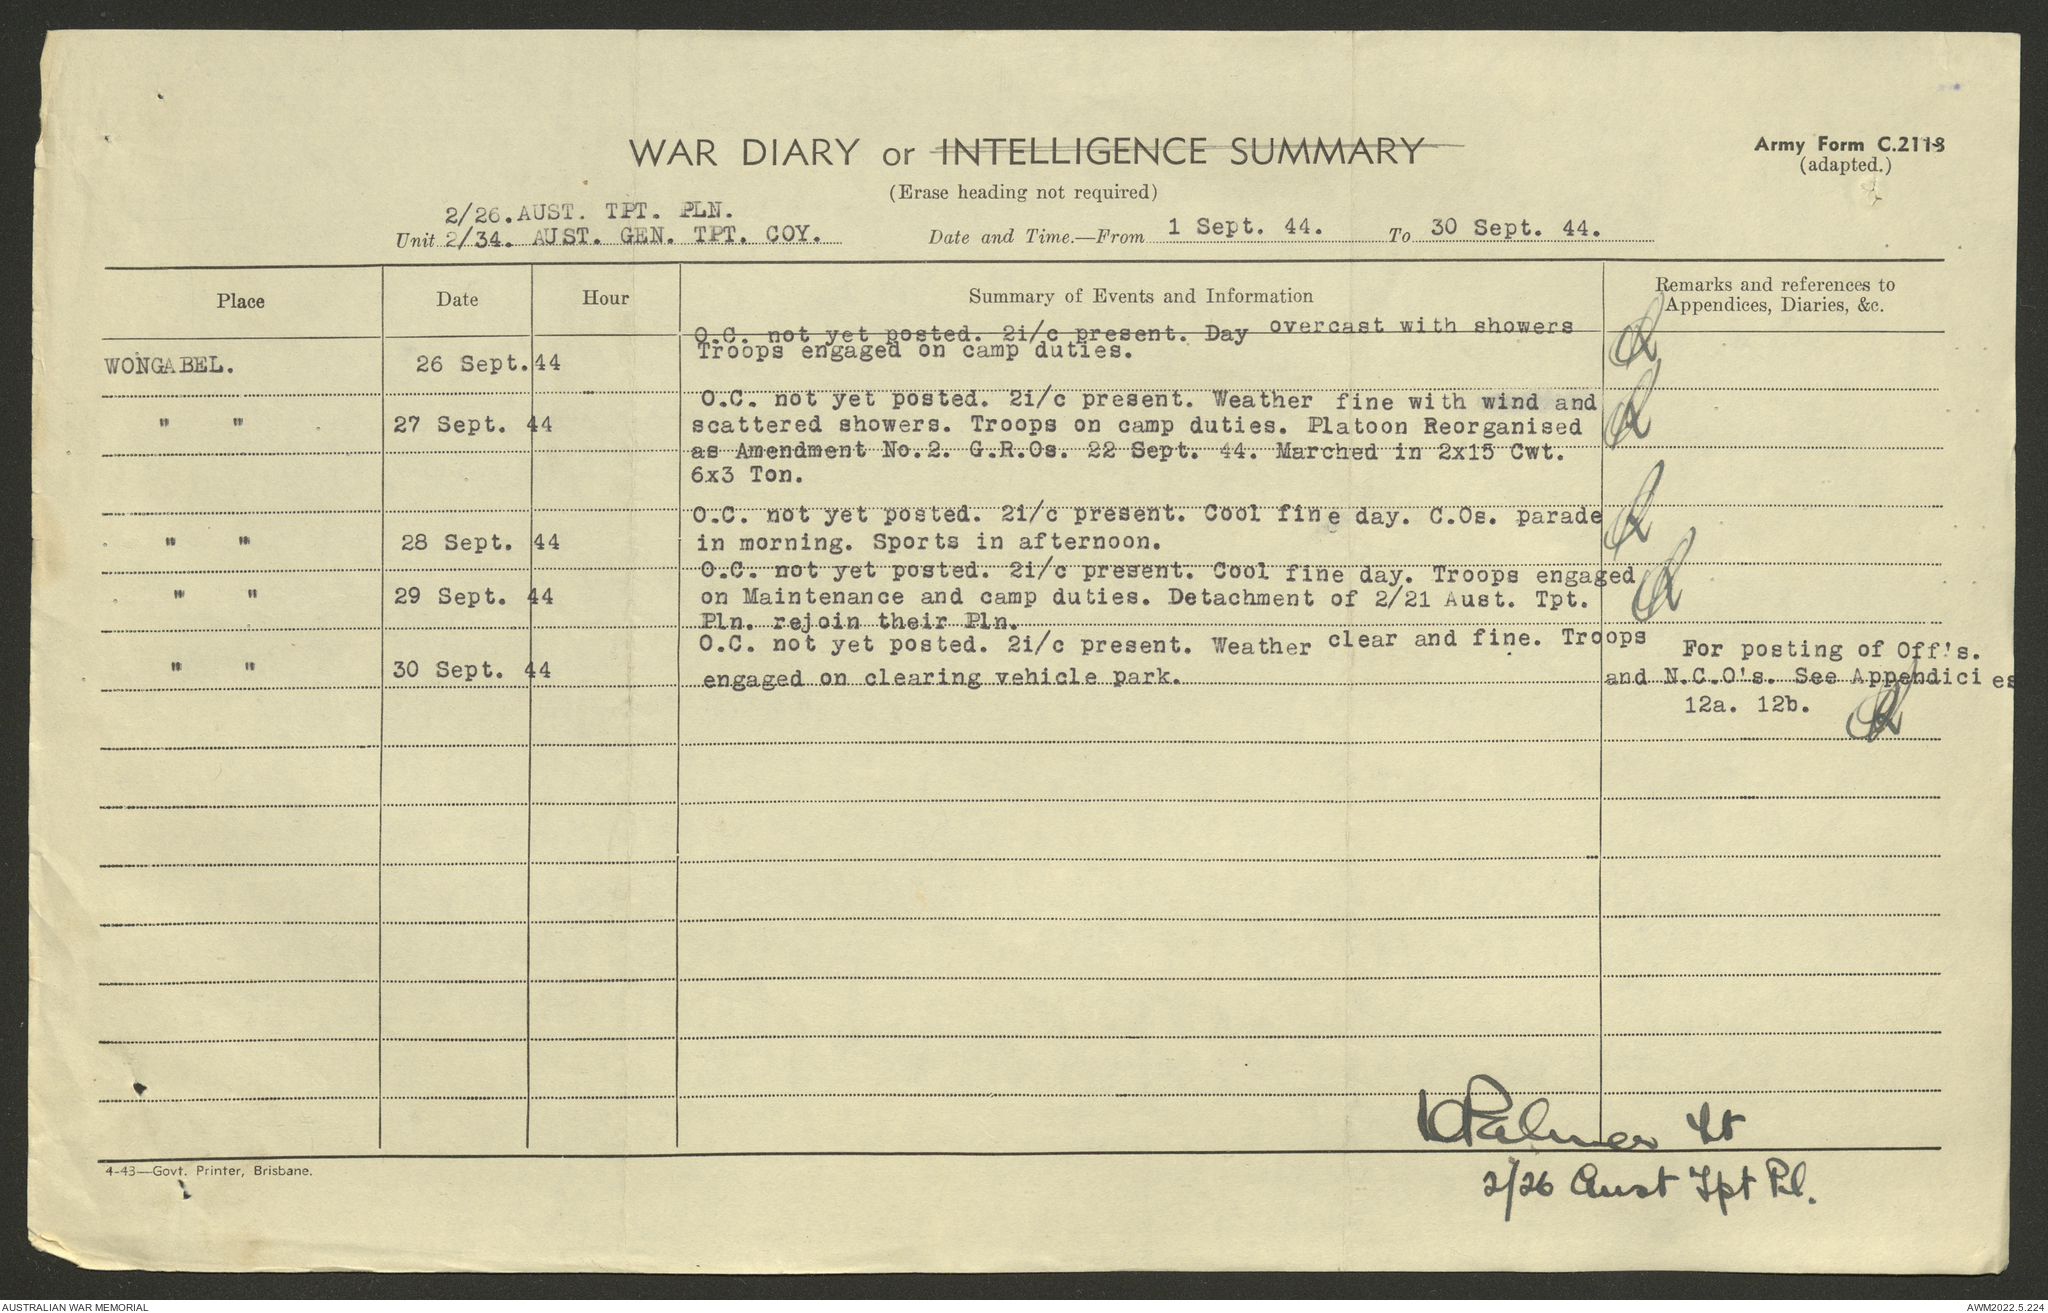 WAR DIARY or INTELLIGENCE SUMMARY
Army Form C.2118
(adapted.)
(Erase heading not required)
2/26.AUST. TPT. PLN.
Unit 2/34. AUST. GEN. TPT. COY.
Date and Time.—From 1 Sept. 44. To 30 Sept. 44.
Place Date Hour Summary of Events and Information Remarks and references to
Appendices, Diaries, &c.
O.C. not yet posted. 2i/c present. Day overcast with showers
Troops engaged on camp duties.
WONGABEL. 26 Sept.44
O.C. not yet posted. 2i/c present. Weather fine with wind and
" " 27 Sept. 44 scattered showers. Troops on camp duties. Platoon Reorganised
as Amendment No.2. G.R.Os. 22 Sept. 44. Marched in 2x15 Cwt.
6x3 Ton.
O.C. not yet posted. 2i/c present. Cool fine day. C.Os. parade
" " 28 Sept. 44 in morning. Sports in afternoon.
O.C. not yet posted. 2i/c present. Cool fine day. Troops engaged
" " 29 Sept. 44 on Maintenance and camp duties. Detachment of 2/21 Aust. Tpt.
Pln. rejoin their Pln.
O.C. not yet posted. 2i/c present. Weather clear and fine. Troops For posting of Off's.
" " 30 Sept. 44 engaged on clearing vehicle park. and N.C.O's. See Appendici es
12a. 12b.
Palmer Lt
2/26 Aust Tpt Pl.
4-43—Govt. Printer, Brisbane.
AUSTRALIAN WAR MEMORIAL
AWM2022.5.224